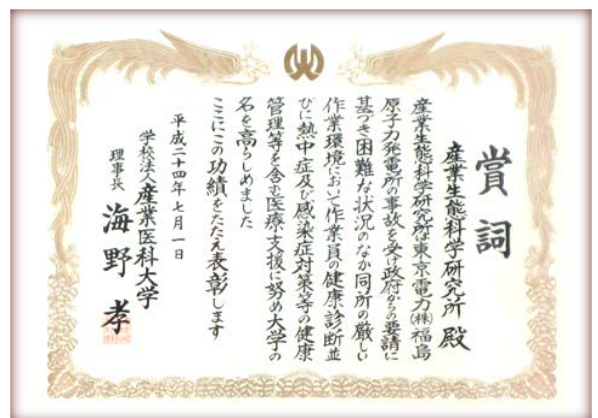 賞詞
産業生態科学研究所 殿
産業生態科学研究所は東京電力㈱福島
原子力発電所の事故を受け政府からの要請に
基づき困難な状況のなか同所の厳しい
作業環境において作業員の健康診断並
びに熱中症及び感染症対策等の健康
管理等を含む医療支援に努め大学の
名を高らしめました
ここにこの功績をたたえ表彰します
平成二十四年七月一日
学校法人産業医科大学
理事長 海野孝